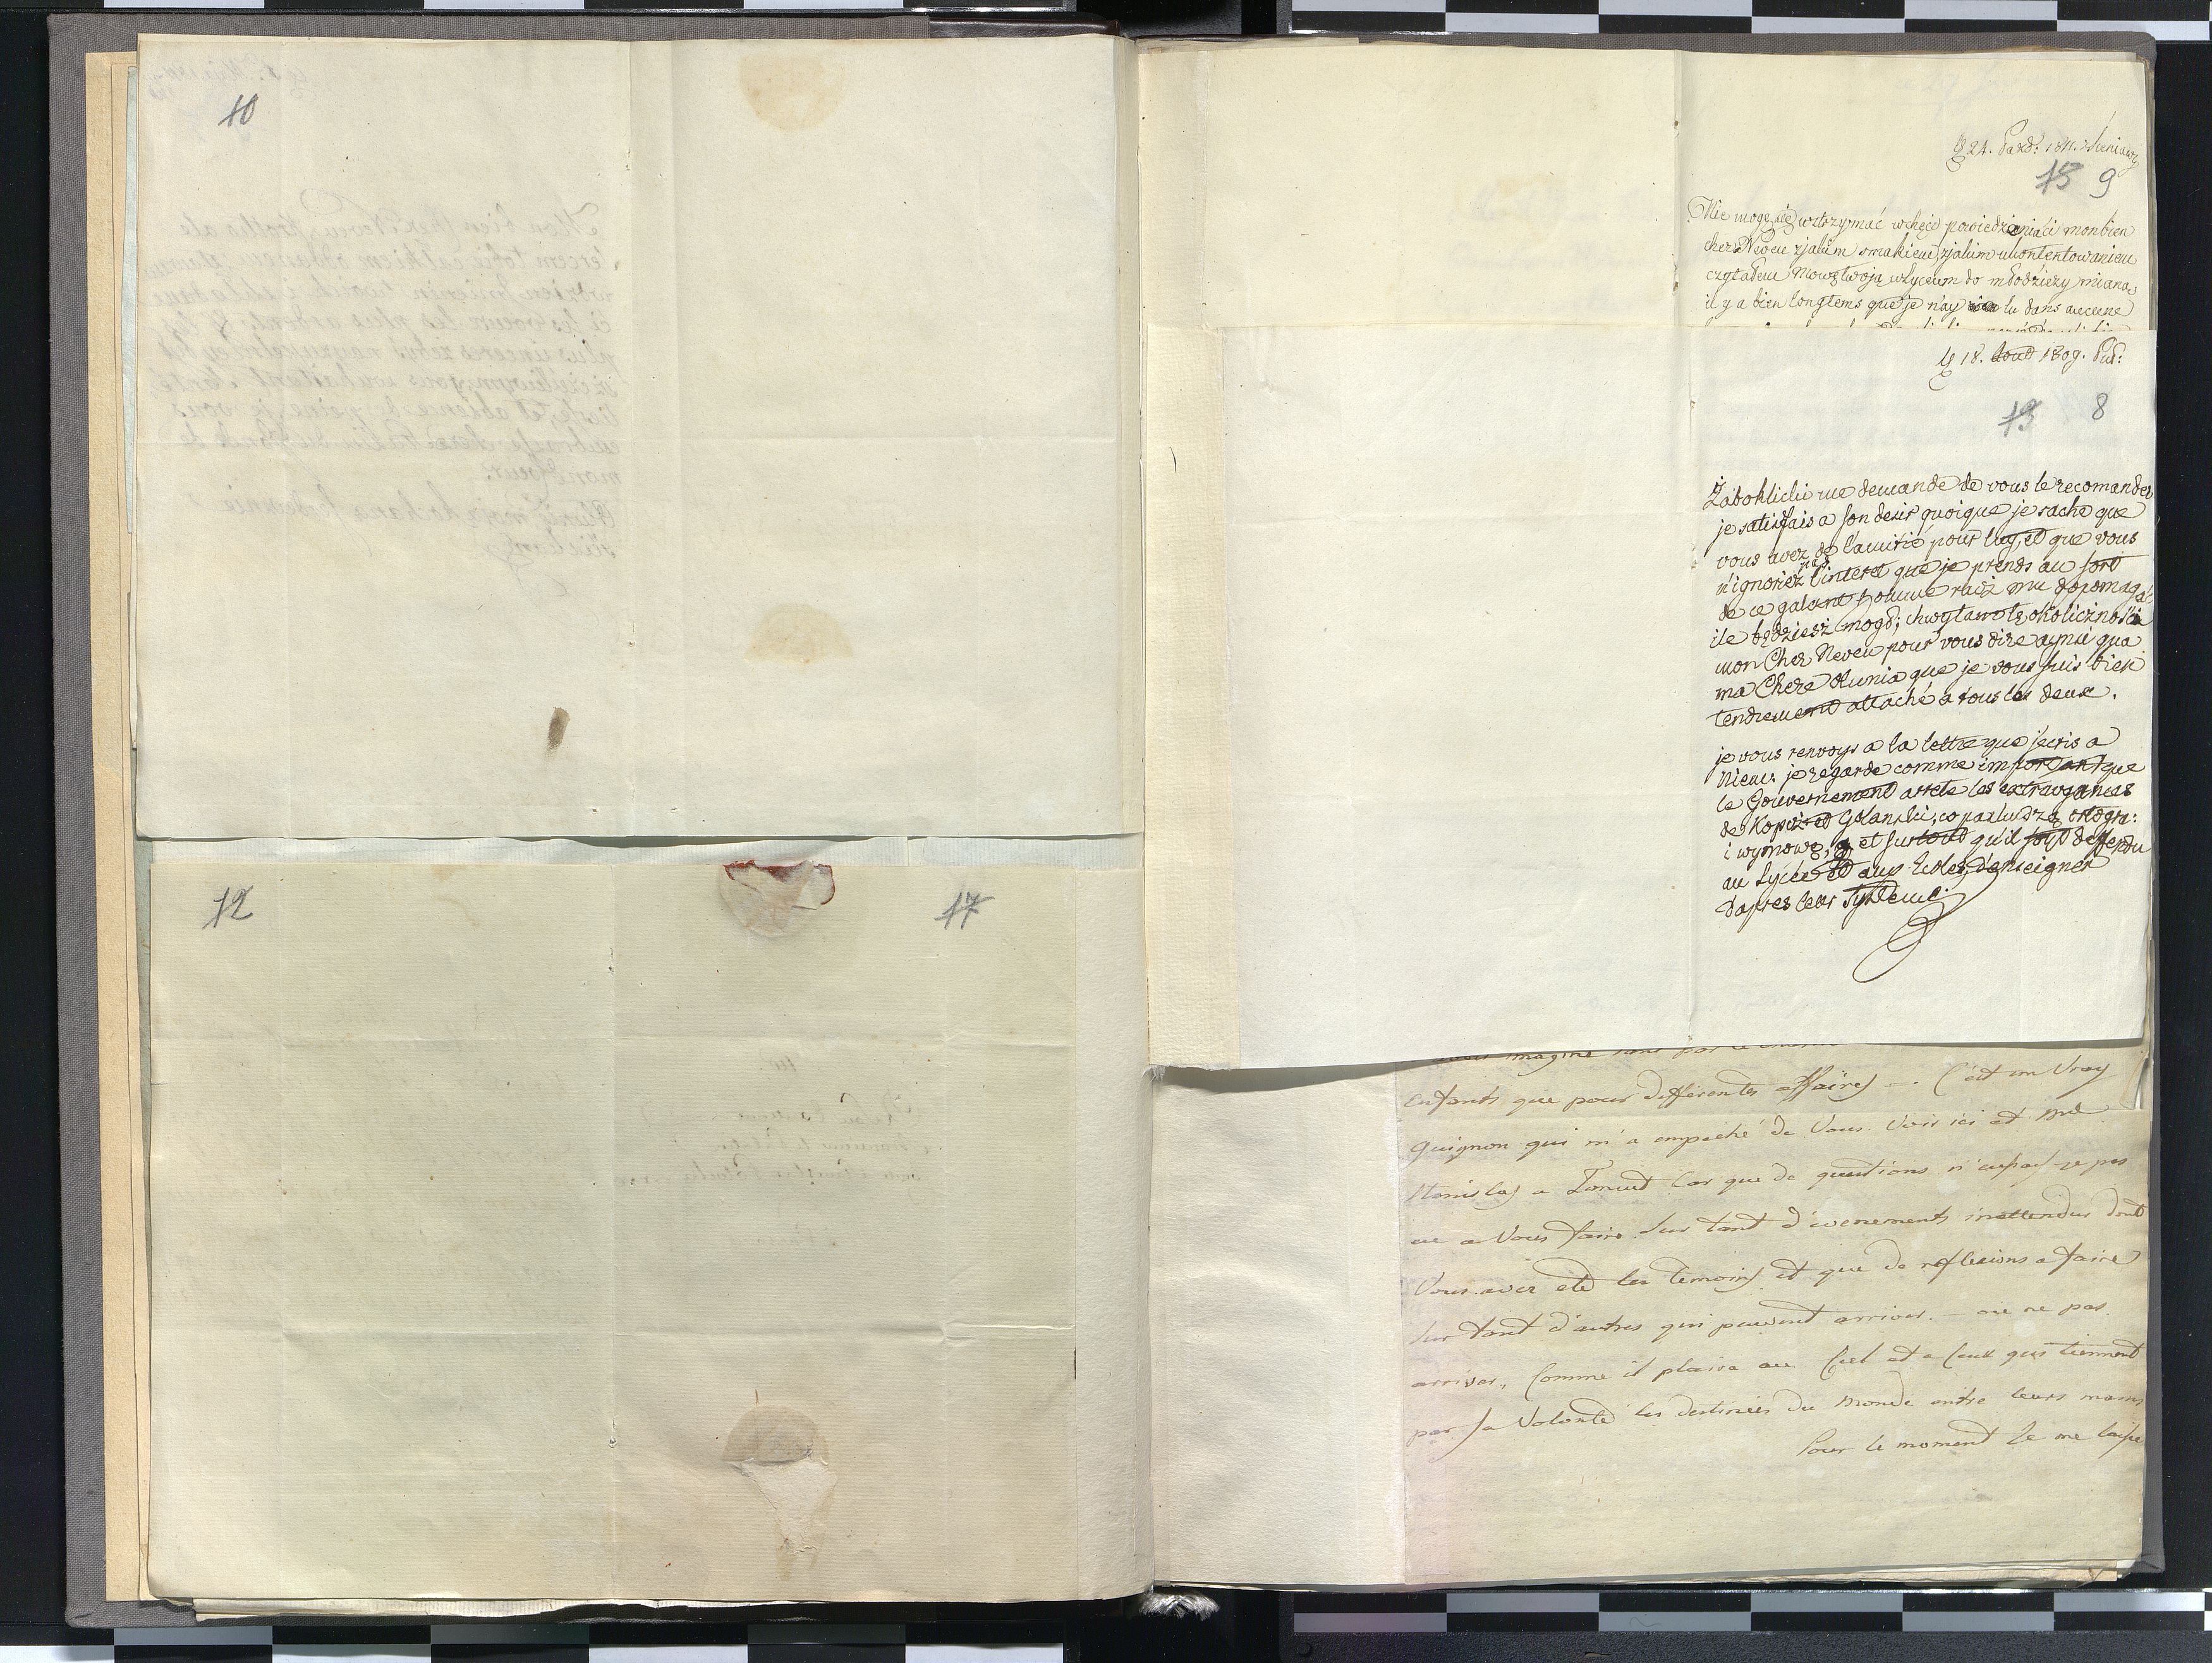 10
12
17
24. Paźd: 1811. Sieniawy
13 9
Nie mogę się wstrzymać w chęci powiedzenia ci mon bien
cher Neveu z jakim smakiem, z jakim ukontentowaniem
czytałem Mowę twoją w Lyceum do młodzieży mianą,
il y a bien longtems que je n'ay lu dans aucune
18. 1809. Puł:
13 8
Zaboklicki me demande de vous le recomander
je satisfais a son desir quoique je sache que
vous avez de l'amitié pour luy, et que vous
n'ignorez pas l'interet que je prends au sort
de ce galant homme racz mu dopomagać
ile będziesz mogł; chwytam tę okoliczność
mon Cher Neveu pour vous dire aynsi qua
ma Chere Olunia que je vous suis bien
tendrement attaché a tous les deux.
je vous renvoys a la lettre que jecris a
Niem: je regarde comme important que
le Gouvernement arrete les extravgances
de Kopcz: et Golanski, co paskudzą ortogra:
i wymowę, et surtout qu'il soyt deffendu
au Lycée et aux Ecoles, d'enseigner
d'apres leur Systeme.
enfants que pour differentes affaires —. C'est un Vray
Guignon qui m'a empeché de Vous Voir ici et Md
Stanislas a Lancut Car que de questions n'eusse-je pas
eu a Vous faire Sur tant d'evenements inattendus dont
Vous avez eté les temoins et que de reflexions a faire
Sur tant d'autres qui peuvent arriver — ou ne pas
arriver, Comme il plaira au Ciel et a Ceux qui tiennent
par Sa Volonté les destinées du Monde entre leurs mains
Pour le moment Je me laisse